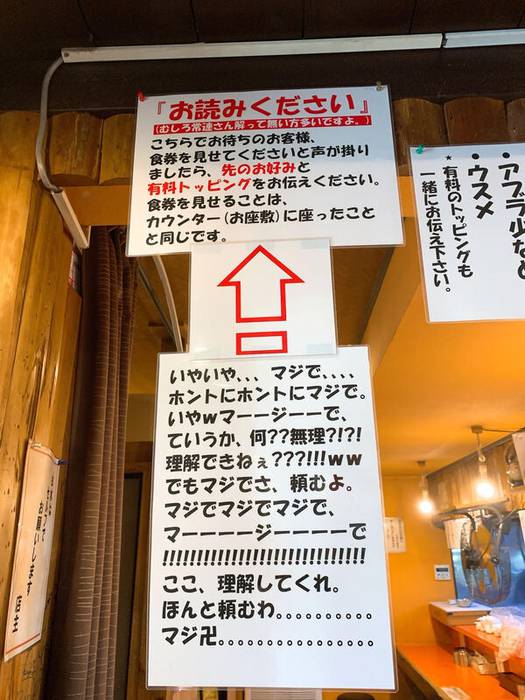 『お読みください』
(むしろ常連さん解って無い方多いですよ。)
こちらでお待ちのお客様、
食券を見せてくださいと声が掛り
ましたら、先のお好みと
有料トッピングをお伝えください。
食券を見せることは、
カウンター(お座敷)に座ったこと
と同じです。
いやいや、、、マジで、、、、
ホントにホントにマジで。
いやwマーージーーで、
ていうか、何??無理?!?!
理解できねぇ???!!!ww
でもマジでさ、頼むよ。
マジでマジでマジで、
マーーーージーーーーで
!!!!!!!!!!!!!!!!!!!!!!!!!!!!!!
ここ、理解してくれ。
ほんと頼むわ。。。。。。。。。。
マジ卍。。。。。。。。。。。。。。。
・アブラ少なめ
・ウスメ
★有料のトッピングも
一緒にお伝え下さい。
お願いします
店主